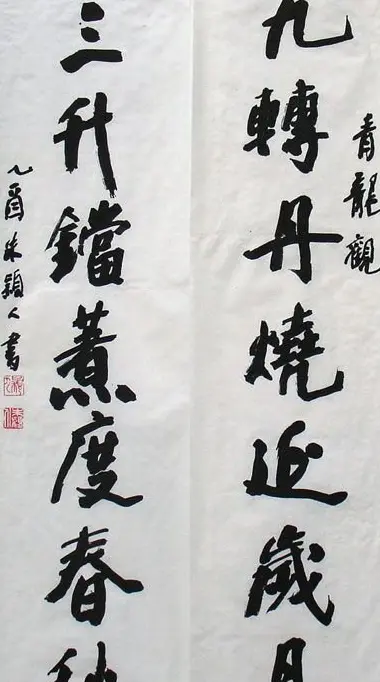 青龍觀
九轉丹燒近歲月
三升鐺煮度春秋
乙酉朱穎人書